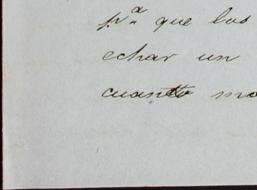 p.ª que los
echar un
cuanto mo